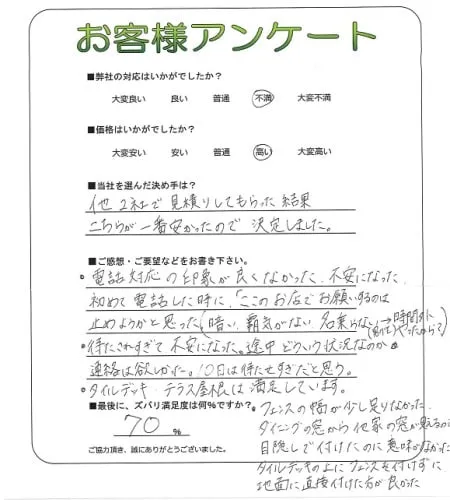 お客様アンケート
■弊社の対応はいかがでしたか?
大変良い 良い 普通 不満 大変不満
■価格はいかがでしたか?
大変安い 安い 普通 高い 大変高い
■当社を選んだ決め手は?
他2社で見積りしてもらった結果
こちらが一番安かったので決定しました。
■ご感想・ご要望などをお書き下さい。
・電話対応の印象が良くなかった、不安になった
初めて電話した時に、「ここのお店でお願いするのは
止めようかと思った(暗い、覇気がない、名乗らない→時間外
やったから?)
・待たされすぎて不安になった。途中どういう状況なのか
連絡は欲しかった。10日は待たせすぎだと思う。
・タイルデッキ・テラス屋根は満足しています。
■最後に、ズバリ満足度は何%ですか?
70%
ご協力頂き、誠にありがとうございました。
・フェンスの幅が少し足りなかった。
ダイニングの窓から他家の窓が見えるので
目隠しで付けたのに意味がなかった
タイルデッキの上にフェンスを付けずに
地面に直接付けた方が良かった